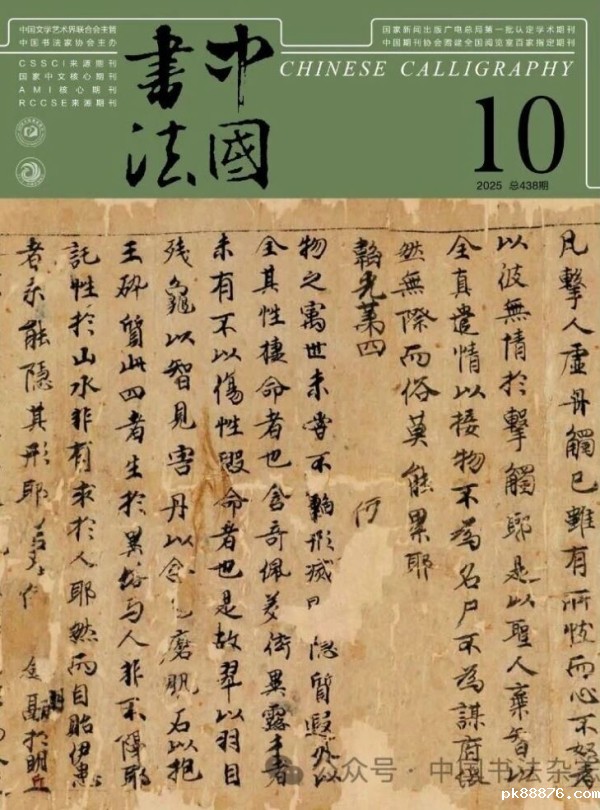 中国文学艺术界联合会主管
中国书法家协会主办
CSSCI来源期刊
国家中文核心期刊
AMI核心期刊
RCCSE来源期刊
中國
書法
国家新闻出版广电总局第一批认定学术期刊
中国期刊协会馆建全国阅览室百家指定期刊
CHINESE CALLIGRAPHY
10
2025 总438期
凡擊人虛舟觸己雖有所忮而心不怒者
以彼無情於擊觸耶是以聖人棄智以
全真遣情以接物不為名尸不為謀府儼
然無際而俗莫能累耶
韜光第四
何
物之寓世未嘗不韜形滅 隱質遐外以
全其性棲命者也含奇佩美衒異露才者
未有不以傷性毀命者也是故翠以羽自
殘龜以智見害丹以含色磨肌石以抱
玉碎質此四者生於異俗与人非不隔耶
託性於山水非有求於人耶然而自貽伊患
者未能隱其形耶
公众号·中国书法杂志
pk88876.com